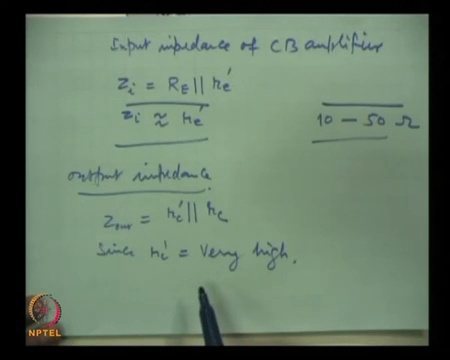 Input impedance of CB amplifier
Zi = RE || re'
Zi ≈ re'
10 - 50 Ω
output impedance.
Zout = rc' || rc
Since rc' = very high.
NPTEL